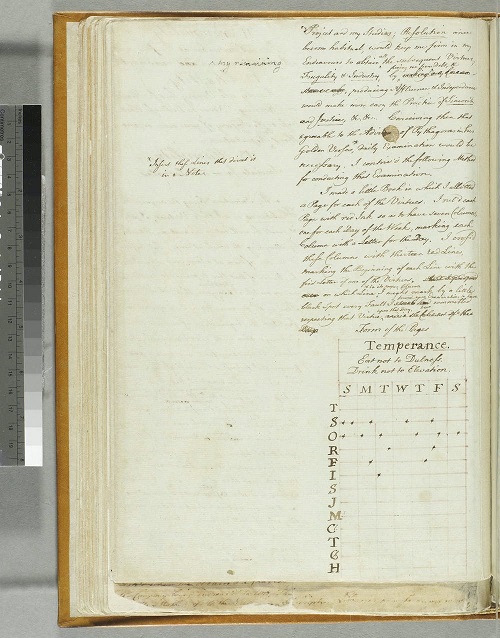 Project and my Studies; Resolution once
become habitual, would keep me firm in my
Endeavours to obtain all the subsequent Virtues;
Frugality & Industry, by freeing me from my remaining Debt, &
producing Affluence & Independance
would make more easy the Practice of Sincerity
and Justice, &c. &c. Conceiving then that
agreable to the Advice of Pythagoras in his
Golden Verses, daily Examination would be
necessary, I contriv'd the following Method
for conducting that Examination.
I made a little Book in which I allotted
a Page for each of the Virtues. I rul'd each
Page with red Ink so as to have seven Columns,
one for each Day of the Week, marking each
Column with a Letter for the Day. I cross'd
these Columns with thirteen red Lines,
marking the Beginning of each Line with the
first Letter of one of the Virtues,
on which Line, I might mark by a little
black Spot every Fault I
respecting that Virtue
Insert those Lines that direct it
in a Note.
Form of the Pages
Temperance.
Eat not to Dulness.
Drink not to Elevation.
S M T W T F S
T
S
O
R
F
I
S
J
M
C
T
C
H